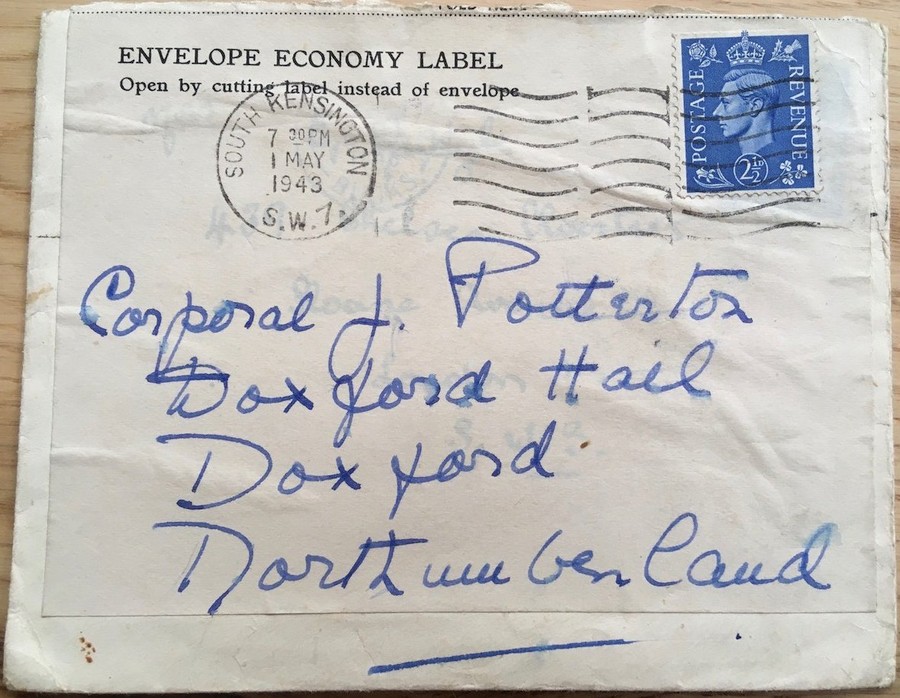 ENVELOPE ECONOMY LABEL
Open by cutting label instead of envelope
SOUTH KENSINGTON
7 30PM
1 MAY
1943
S.W.7.
POSTAGE REVENUE
2½D
Corporal J. Potterton
Doxford Hall
Doxford
Northumberland